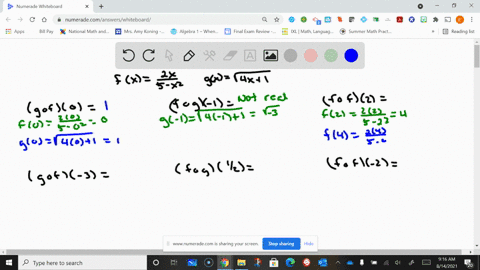 Numerade Whiteboard
numerade.com/answers/whiteboard/
Apps
Bell
National Math and...
Mrs. Amy Korning -...
Algebra 1 – When...
Final Exam Review -...
IXL | Math, Language...
Summer Math Practi...
f(x) = 2x/5-x² g(x) = √4x+1
(gof)(0) = 1
f(0) = 2(0)/5-0² = 0
g(0) = √4(0)+1 = 1
(fog)(-1) = Not real
g(-1) = √4(-1)+1 = √-3
(fof)(2) =
f(2) = 2(2)/5-2² = 4
f(4) = 2(4)/5-4
(gof)(-3) =
(fog)(1/2) =
(fof)(-2) =
www.numerade.com is sharing your screen.
Stop sharing
Hide
Type here to search
9:16 AM
8/14/2021